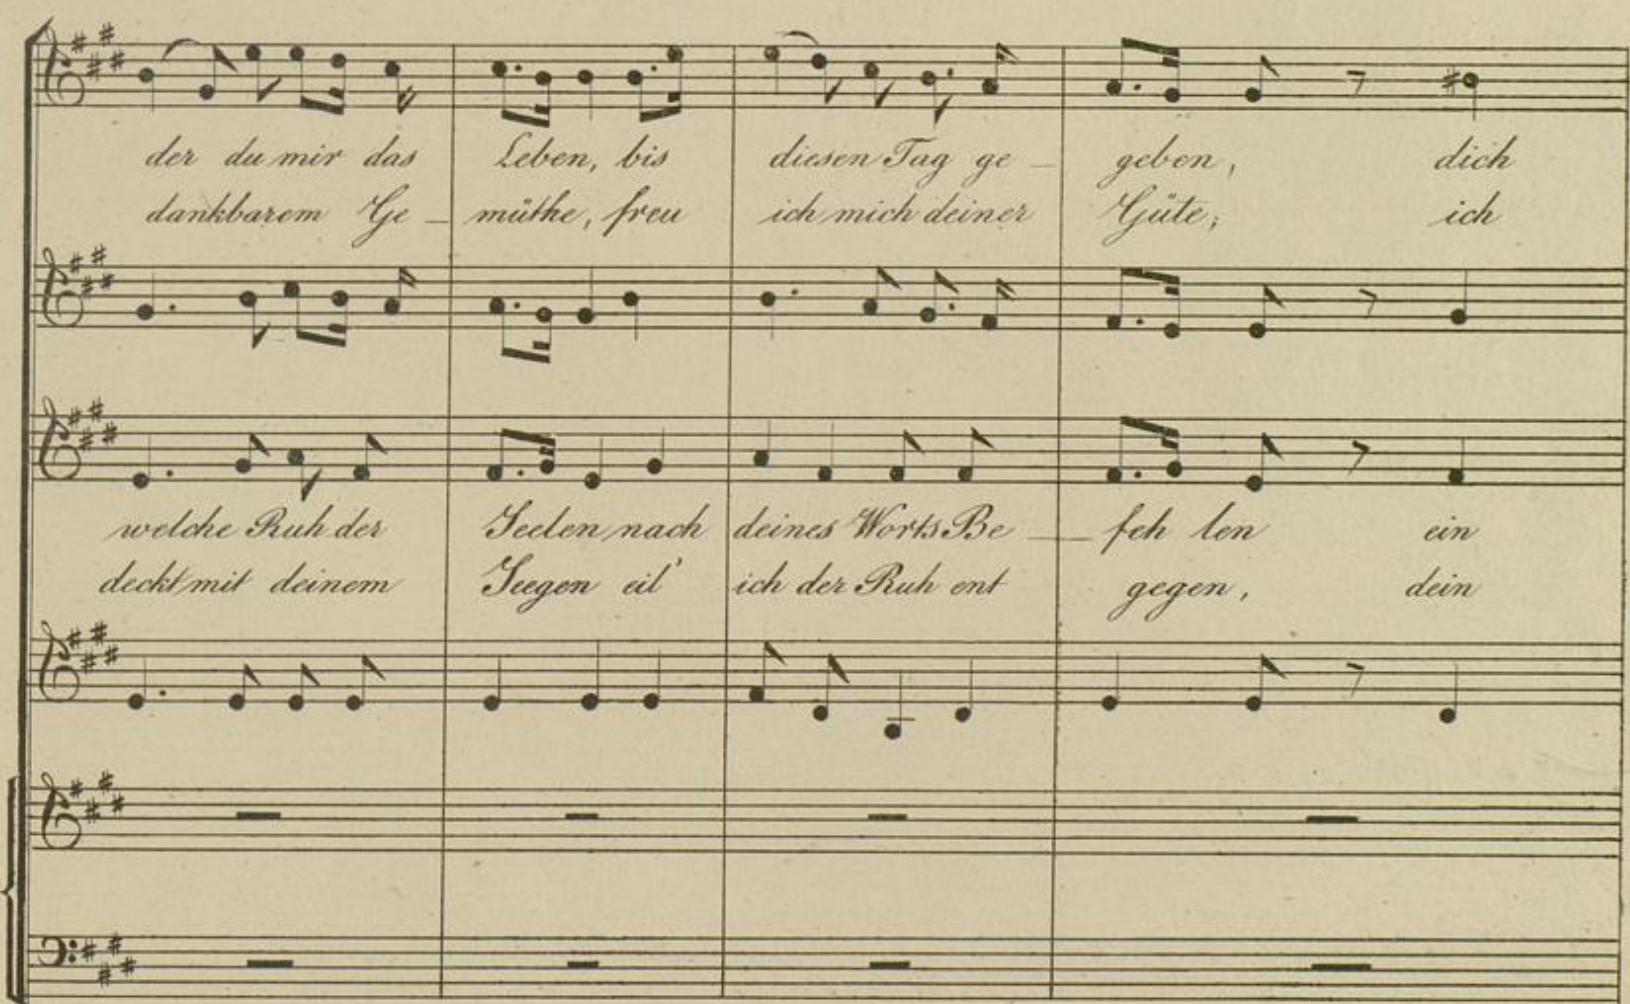 der du mir das Leben, bis diesen Tag ge - geben, dich
dankbarem Ge - müthe, freu ich mich deiner Güte; ich
welche Ruh der Seelen nach deines Worts Be - feh len ein
deckt mit deinem Seegen eil' ich der Ruh ent gegen, dein